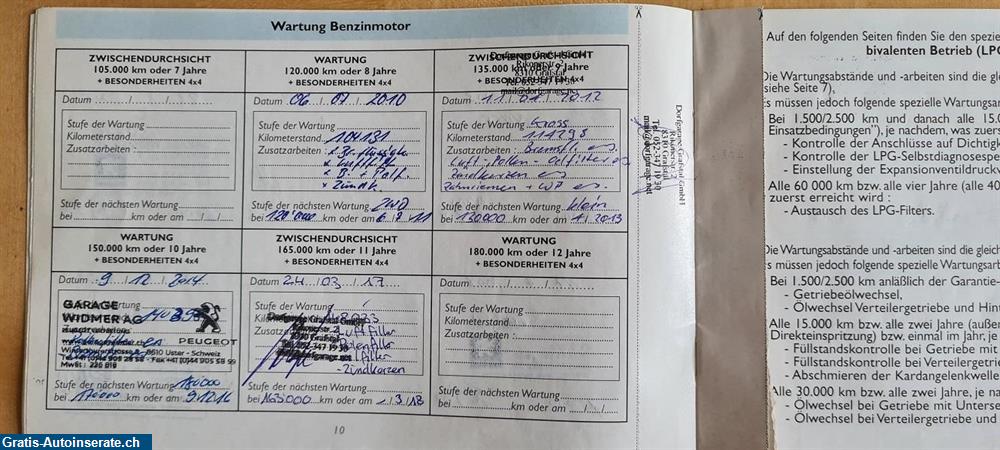 Wartung Benzinmotor
ZWISCHENDURCHSICHT
105.000 km oder 7 Jahre
+ BESONDERHEITEN 4x4
Datum
Stufe der Wartung
Kilometerstand
Zusatzarbeiten :
Stufe der nächsten Wartung
bei km oder am
WARTUNG
120.000 km oder 8 Jahre
+ BESONDERHEITEN 4x4
Datum 06 / 07 / 2010
Stufe der Wartung
Kilometerstand 104131
Zusatzarbeiten :
+ Luftfilt
+ Zündk.
Stufe der nächsten Wartung
bei 120'000 km oder am
ZWISCHENDURCHSICHT
135.000 km oder 9 Jahre
+ BESONDERHEITEN 4x4
Dorfgarage Grafstal GmbH
8310 Grafstal
Tel. 052 347 19 30
mail@dorfgarage.net
Datum 11 / 01 / 2012
Stufe der Wartung Gross
Kilometerstand
Zusatzarbeiten : Bremsfl. es.
Luft-, Pollen-
Zündkerzen es
Zahnriemen + WP es.
Stufe der nächsten Wartung klein
bei 130000 km oder am 1/2013
WARTUNG
150.000 km oder 10 Jahre
+ BESONDERHEITEN 4x4
Datum 9 / 12 / 2014
GARAGE
WIDMER AG
PEUGEOT
8610 Uster - Schweiz
Stufe der nächsten Wartung
bei 170000 km oder am 9/12/16
ZWISCHENDURCHSICHT
165.000 km oder 11 Jahre
+ BESONDERHEITEN 4x4
Datum 24 / 03 / 17
Dorfgarage Grafstal GmbH
8310 Grafstal
Tel. 052 347 19 30
- Luftfilter
- Pollenfilter
- Ölfilter
- Zündkerzen
Stufe der nächsten Wartung
bei 165000 km oder am / 3 / 18
WARTUNG
180.000 km oder 12 Jahre
+ BESONDERHEITEN 4x4
Datum
Stufe der Wartung
Kilometerstand
Zusatzarbeiten :
Stufe der nächsten Wartung
bei km oder am
10
Dorfgarage Grafstal GmbH
8310 Grafstal
Tel. 052 347 19 30
mail@dorfgarage.net
Auf den folgenden Seiten finden Sie den spezie
bivalenten Betrieb (LPG
Die Wartungsabstände und -arbeiten sind die gle
siehe Seite 7),
Es müssen jedoch folgende spezielle Wartungsar
Bei 1.500/2.500 km und danach alle 15.0
Einsatzbedingungen"), je nachdem, was zuers
- Kontrolle der Anschlüsse auf Dichtigk
- Kontrolle der LPG-Selbstdiagnosespe
- Einstellung der Expansionventildruckv
Alle 60 000 km bzw. alle vier Jahre (alle 40
zuerst erreicht wird :
- Austausch des LPG-Filters.
Die Wartungsabstände und -arbeiten sind die gleich
Es müssen jedoch folgende spezielle Wartungsarb
Bei 1.500/2.500 km anläßlich der Garantie-
- Getriebeölwechsel,
- Ölwechsel Verteilergetriebe und Hin
Alle 15.000 km bzw. alle zwei Jahre (außer
Direkteinspritzung) bzw. einmal im Jahr, je
- Füllstandskontrolle bei Getriebe mit
- Füllstandskontrolle bei Verteilergetrie
- Abschmieren der Kardangelenkwelle
Alle 30.000 km bzw. alle zwei Jahre, je na
- Ölwechsel bei Getriebe mit Unterse
- Ölwechsel bei Verteilergetriebe und
Gratis-Autoinserate.ch